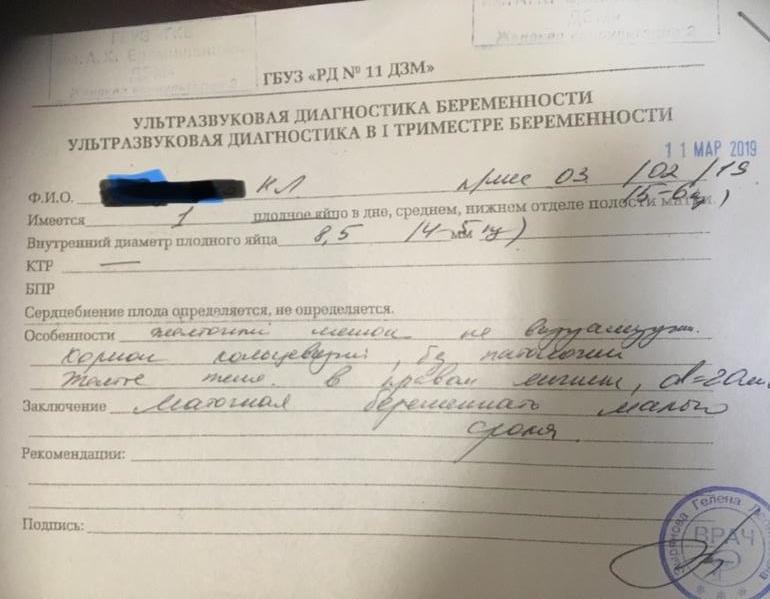 ГБУЗ «РД № 11 ДЗМ»
УЛЬТРАЗВУКОВАЯ ДИАГНОСТИКА БЕРЕМЕННОСТИ
УЛЬТРАЗВУКОВАЯ ДИАГНОСТИКА В I ТРИМЕСТРЕ БЕРЕМЕННОСТИ
11 МАР 2019
Ф.И.О. п/мес 03/02/19
Имеется 1 плодное яйцо в дне, среднем, нижнем отделе полости матки. (5-6 нд)
Внутренний диаметр плодного яйца 8,5 мм (4-5 нд)
КТР —
БПР
Сердцебиение плода определяется, не определяется.
Особенности желточный мешок не визуализ.
Хорион кольцевидный, без патологии
Желте тело в правом яичнике, d=20м
Заключение Маточная беременность малого
срока.
Рекомендации:
Подпись:
Гелена
ВРАЧ